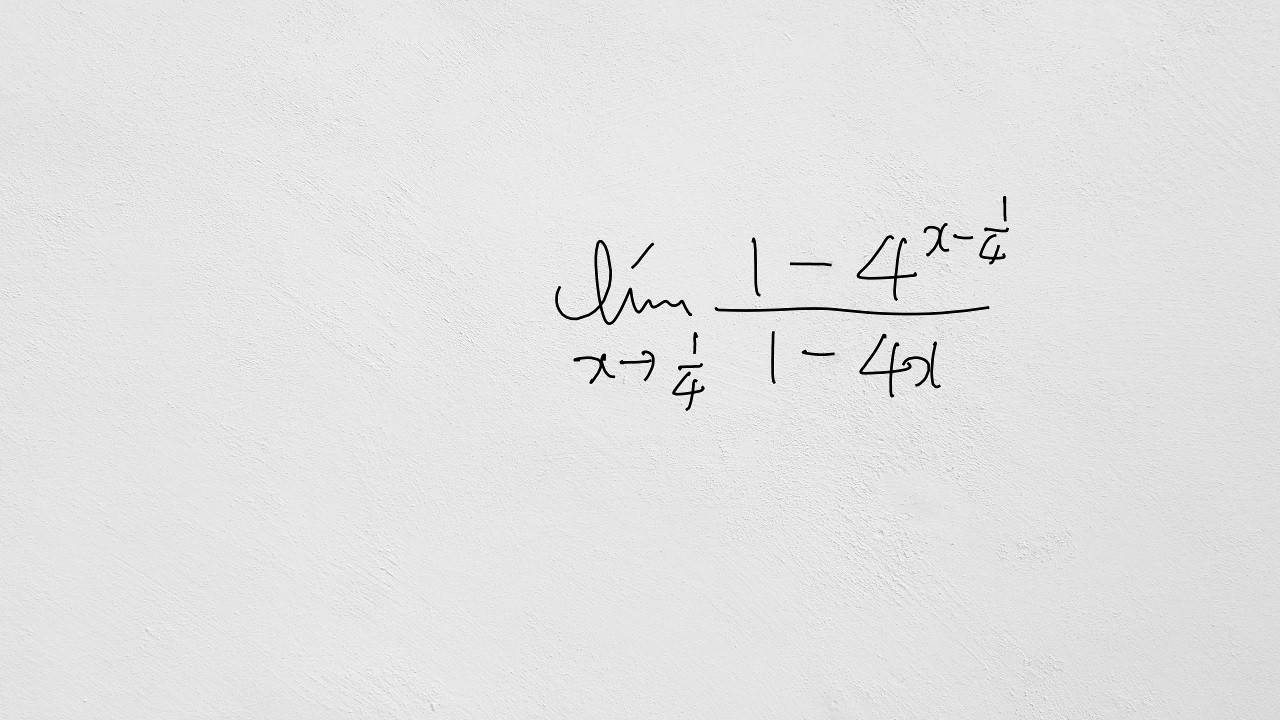 $\lim_{x \to \frac{1}{4}} \frac{1 - 4^{x - \frac{1}{4}}}{1 - 4x}$